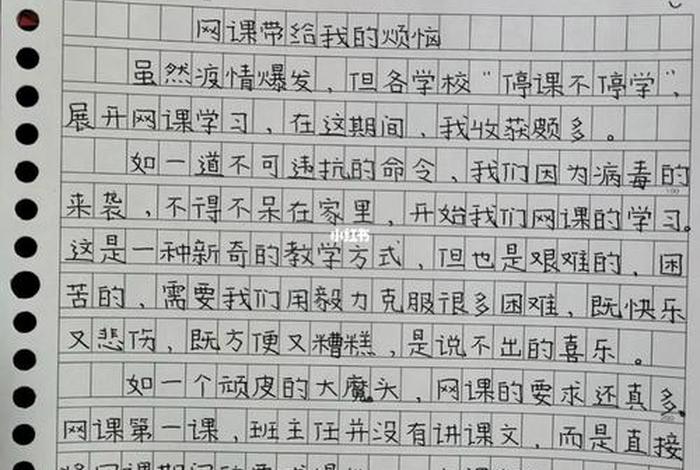 网课带给我的烦恼
虽然疫情爆发，但各学校“停课不停学”，
展开网课学习，在这期间，我收获颇多。
如一道不可违抗的命令，我们因为病毒的
来袭，不得不呆在家里，开始我们网课的学习。
这是一种新奇的教学方式，但也是艰难的，困
苦的，需要我们用毅力克服很多困难，既快乐
又悲伤，既方便又糟糕，是说不出的喜乐。
如一个顽皮的大魔头，网课的要求还真多。
网课第一课，班主任并没有讲课文，而是直接
小红书